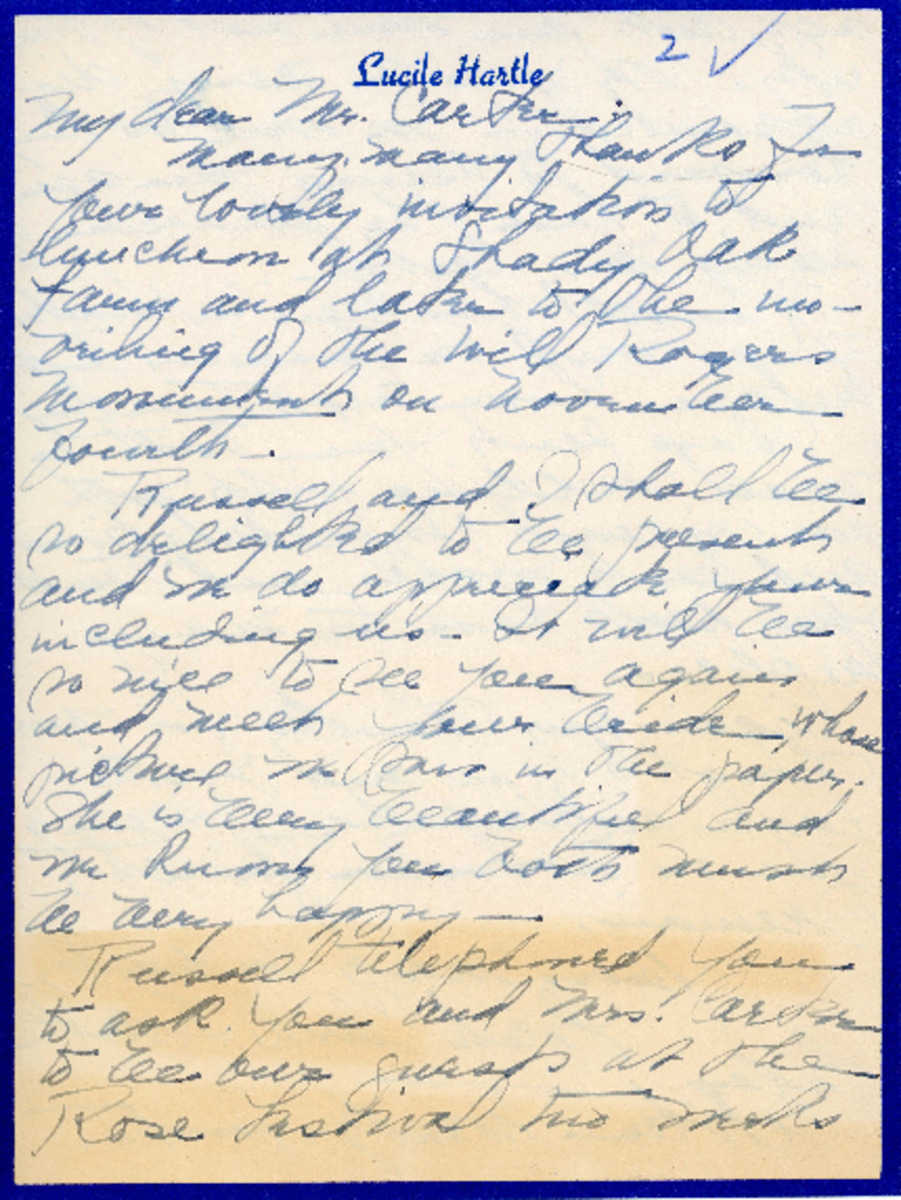 2 ✓
Lucile Hartle
My dear Mr. Carter:
Many, many thanks for
your lovely invitation to
luncheon at Shady Oak
Farm and later to the un-
veiling of the Will Rogers
Monument on November
fourth.
Russell and I shall be
so delighted to be present
and we do appreciate your
including us - It will be
so nice to see you again
and meet your bride, whose
picture we saw in the paper.
She is very beautiful and
we know you both must
be very happy —
Russell telephoned you
to ask you and Mrs. Carter
to be our guests at the
Rose Festival two weeks